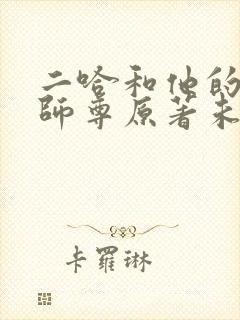 二哈和他的
師尊原著未
卡羅琳